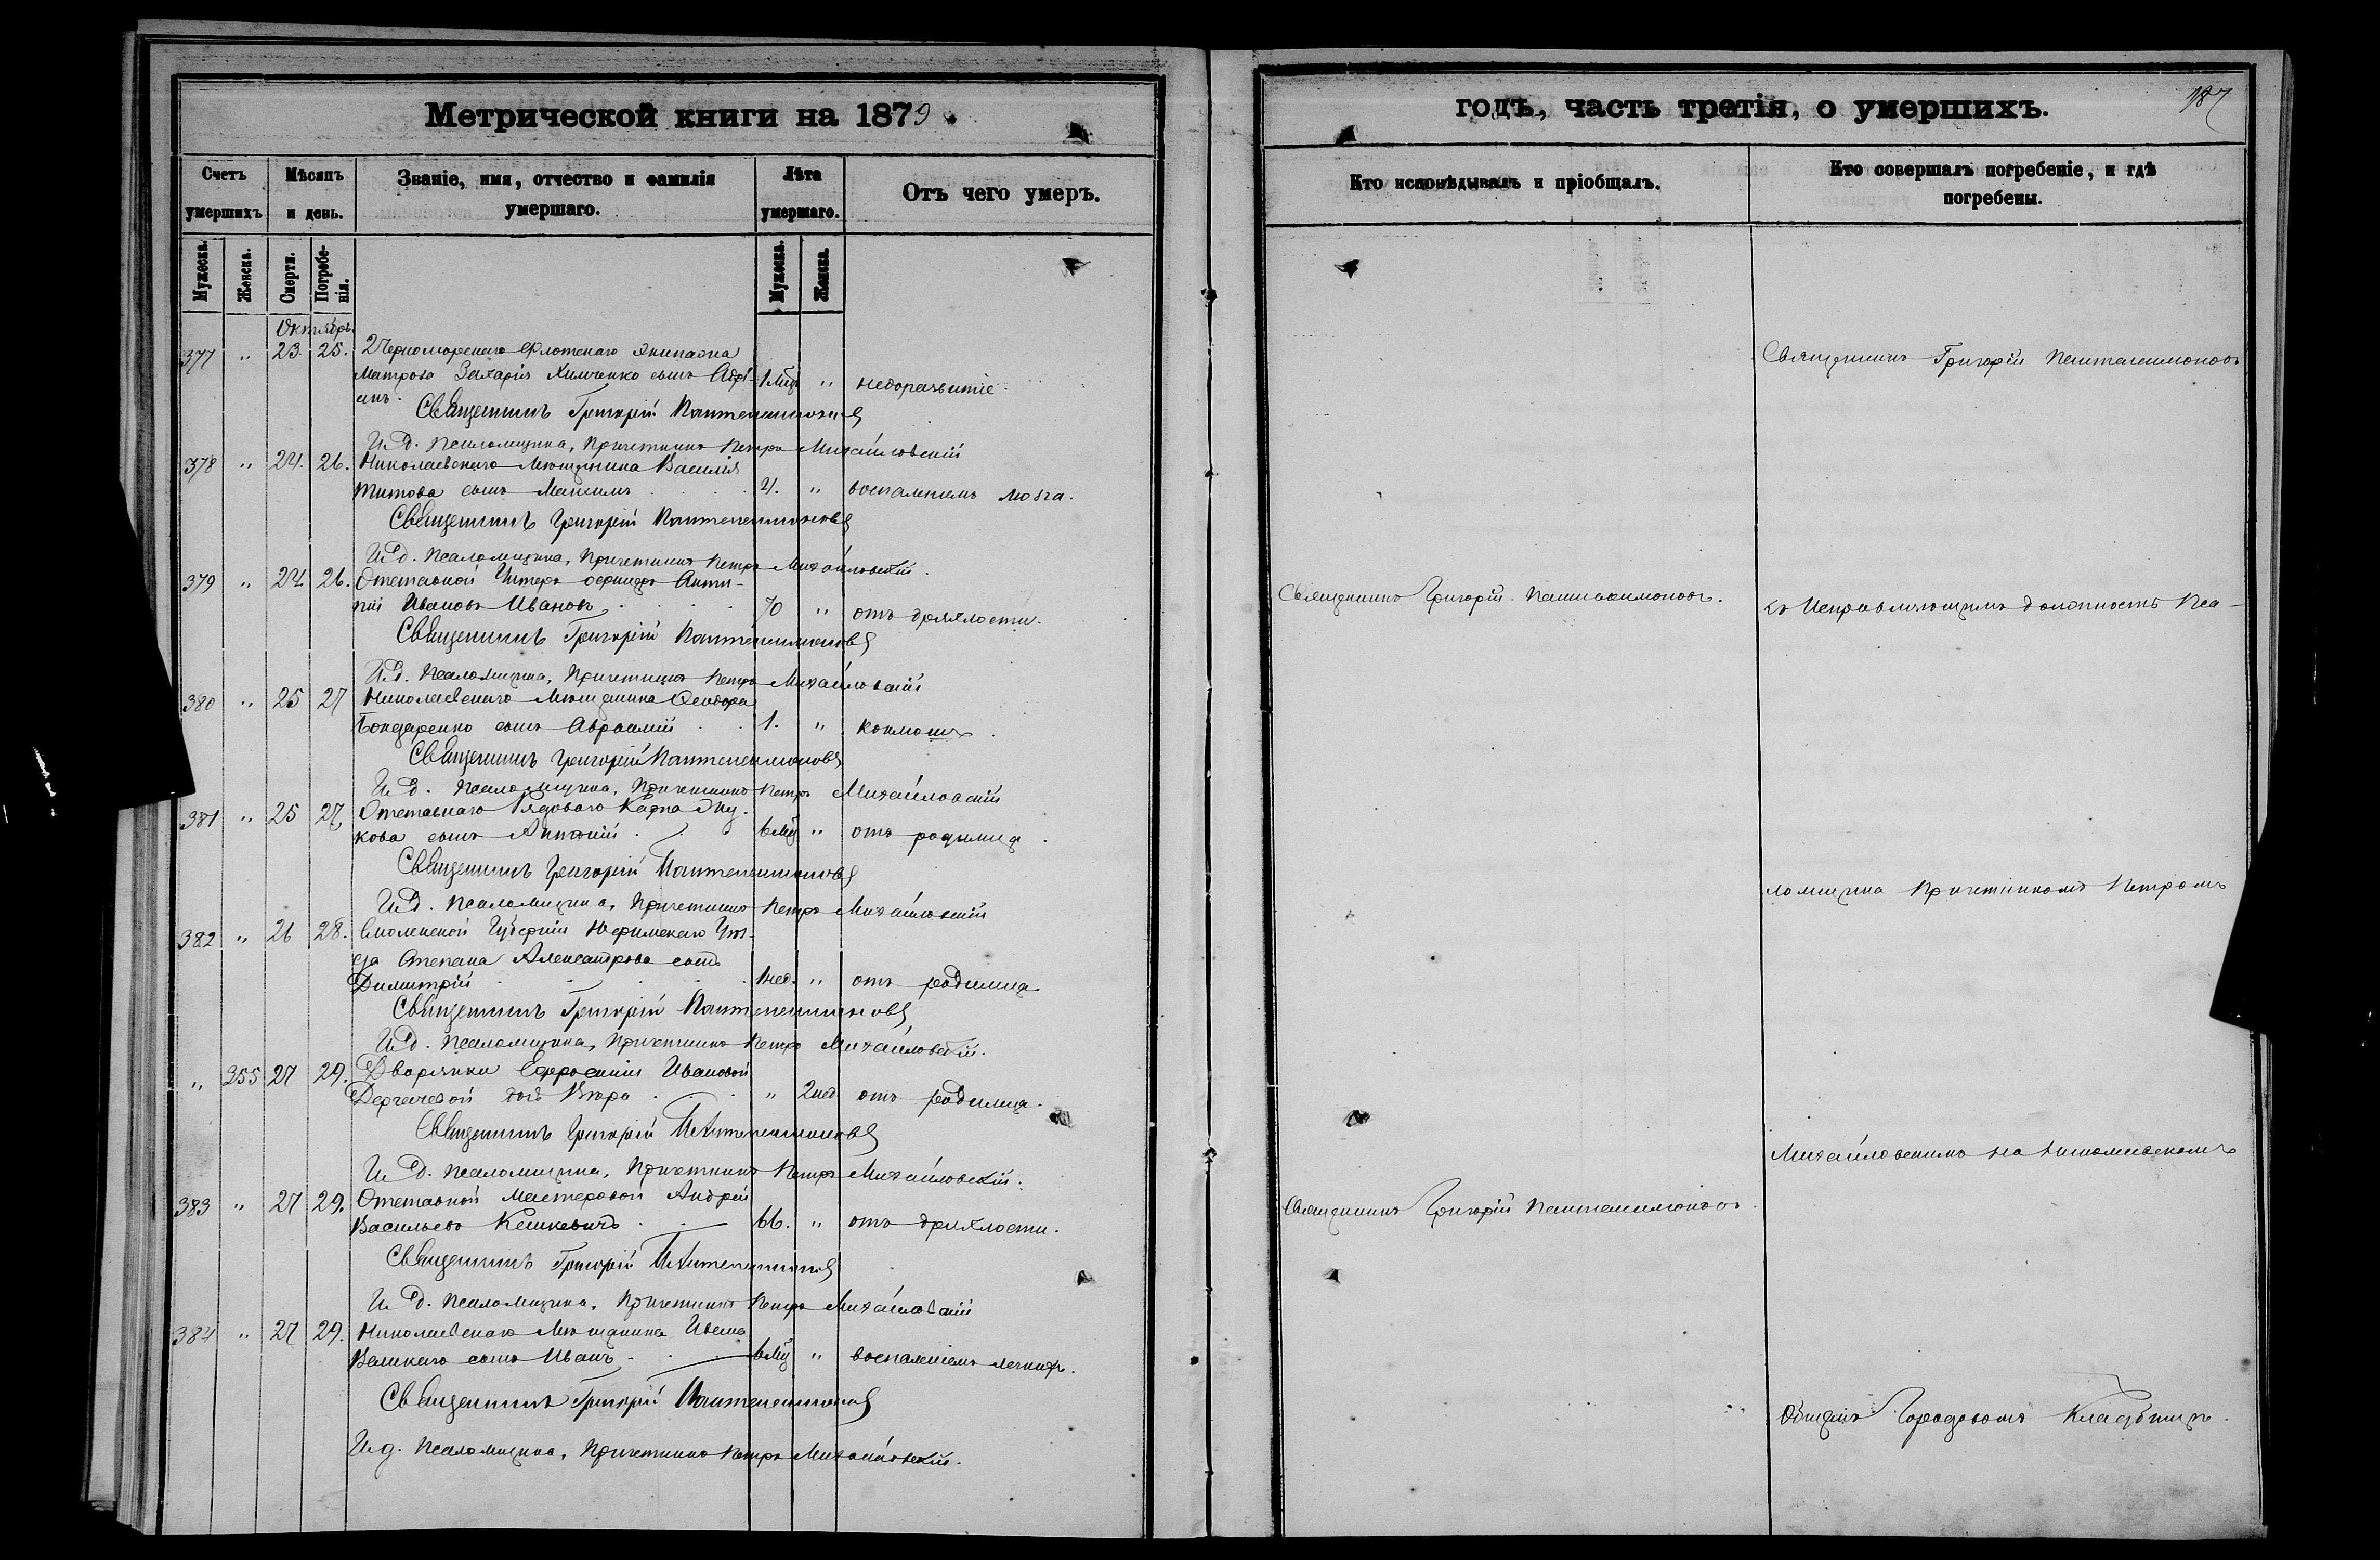 Метрической книги на 1879
годъ, часть третія, о умершихъ.
187
Счетъ умершихъ
Мѣсяцъ и день.
Званіе, имя, отчество и фамилія умершаго.
Лѣта умершаго.
Отъ чего умеръ.
Кто исповѣдывалъ и пріобщалъ.
Кто совершалъ погребеніе, и гдѣ погребены.
Мужеска.
Женска.
Смерти.
Погребенія.
Мужеска.
Женска.
Октябрь.
377 " 23. 25. 2 Черноморскаго Флотскаго Экипажа
Матроса Захарія Химченко сынъ Адрі- 1 Мѣц " недоразвитіе.
анъ.
Священникъ Григорій Пантелеимоновъ
И. д. Псаломщика, Причетникъ Петръ Михайловскій
378 " 24. 26. Николаевскаго Мѣщанина Василія
Титова сынъ Максимъ 4. " воспаленіемъ мозга.
Священникъ Григорій Пантелеимоновъ
И. д. Псаломщика, Причетникъ Петръ Михайловскій.
379 " 24. 26. Отставной Унтеръ офицеръ Анти-
пій Ивановъ Ивановъ 70 " отъ дряхлости.
Священникъ Григорій Пантелеимоновъ
И. д. Псаломщика, Причетникъ Петръ Михайловскій
380 " 25 27 Николаевскаго Мѣщанина Феодора
Бондаренко сынъ Авраамій 1. " коклюшъ.
Священникъ Григорій Пантелеимоновъ
И. д. Псаломщика, Причетникъ Петръ Михайловскій
381 " 25 27. Отставнаго Рядоваго Карпа
кова сынъ Антоній 6 Мѣц " отъ родимца.
Священникъ Григорій Пантелеимоновъ
И. д. Псаломщика, Причетникъ Петръ Михайловскій
382 " 26 28. Смоленской Губерніи Уѣз-
да Степана Александрова сынъ
Димитрій 1 нед. " отъ родимца.
Священникъ Григорій Пантелеимоновъ
И. д. Псаломщика, Причетникъ Петръ Михайловскій.
" 355 27 29. Дворянки Ефросиніи Ивановой
Дергачевой дочь Вѣра " 2 нед отъ родимца.
Священникъ Григорій Пантелеимоновъ
И. д. Псаломщика, Причетникъ Петръ Михайловскій.
383 " 27 29. Отставной Мастеровой Андрей
Васильевъ Кешкевичъ 66. " отъ дряхлости.
Священникъ Григорій Пантелеимоновъ
И. д. Псаломщика, Причетникъ Петръ Михайловскій
384 " 27 29. Николаевскаго Мѣщанина Ивана
Великаго сынъ Иванъ 6 Мѣц " воспаленіемъ легкихъ.
Священникъ Григорій Пантелеимоновъ
И. д. Псаломщика, Причетникъ Петръ Михайловскій.
Священникъ Григорій Пантелеимоновъ.
Священникъ Григорій Пантелеимоновъ.
Священникъ Григорій Пантелеимоновъ
съ Исправляющимъ должность Пса-
ломщика Причетникомъ Петромъ
Михайловскимъ на Николаевскомъ
Общемъ Городовомъ Кладбищѣ.